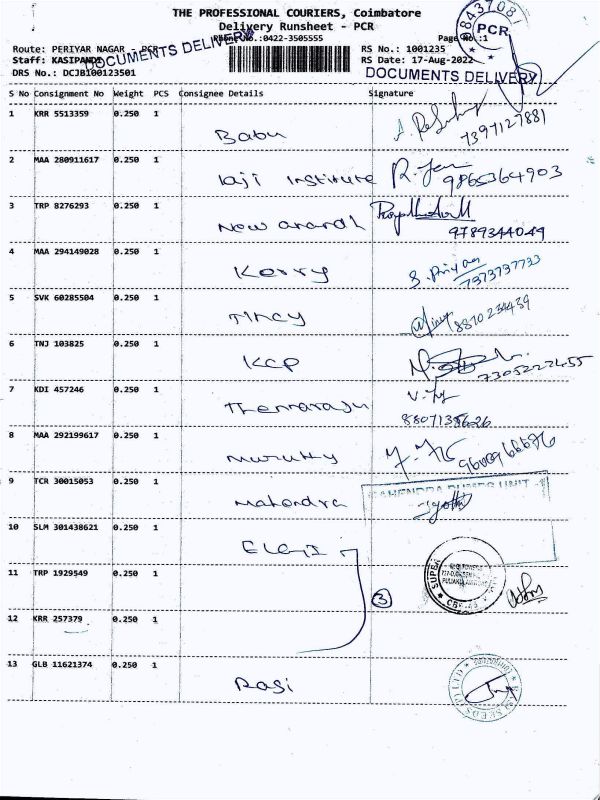 THE PROFESSIONAL COURIERS, Coimbatore
Delivery Runsheet - PCR
Phone No.:0422-3505555
Page No.:1
Route: PERIYAR NAGAR - PCR
RS No.: 1001235
Staff: KASIPANDI
RS Date: 17-Aug-2022
DRS No.: DCJB100123501
DOCUMENTS DELIVERY
DOCUMENTS DELIVERY
PCR
S No Consignment No Weight PCS Consignee Details Signature
1 KRR 5513359 0.250 1 Babu 7397127881
2 MAA 280911617 0.250 1 laji institute 9865364903
3 TRP 8276293 0.250 1 New anandh 9789344049
4 MAA 294149028 0.250 1 Kerry S. Priyaa 7373737733
5 SVK 60285504 0.250 1 Tincy 8870234439
6 TNJ 103825 0.250 1 KCP 7305222455
7 KDI 457246 0.250 1 Thennaraju
8 MAA 292199617 0.250 1 Murutty
9 TCR 30015053 0.250 1 Mahendra Jyothi
MAHENDRA PUMPS UNIT
10 SLM 301438621 0.250 1 ELGI
11 TRP 1929549 0.250 1
3
12 KRR 257379 0.250 1
13 GLB 11621374 0.250 1 Rasi